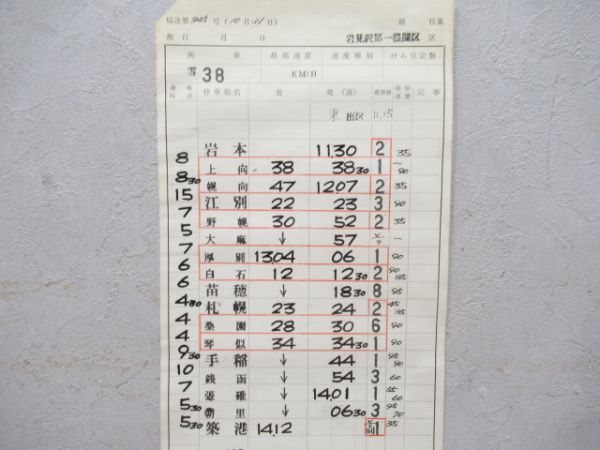 局達第 985 号 ( 10 月 21 日 )
組 仕業
施行 月 日 岩見沢第一機関区 区
列車 最高速度 速度種別 けん引定数
雪 38 KM/H
運転時分 停車場名 着 発 (通) 着発線 制限速度 記事
東 出区 11.15
岩本 11.30 2 35
8
上向 38 38 30 1 90
8 30
幌向 47 12.07 2 35
15
江別 22 23 3 90
7
野幌 30 52 2 35
5
大麻 ↓ 57
7
厚別 13.04 06 1 90
6
白石 12 12 30 2 90 85
6
苗穂 ↓ 18 30 8 95
4 30
札幌 23 24 2 45 35
4
桑園 28 30 6 90
4
琴似 34 34 30 1 90
9 30
手稲 ↓ 44 1 95 90
10
銭函 ↓ 54 3 60
7
張碓 ↓ 14.01 1 55 60
5 30
朝里 ↓ 06 30 3 95 70
5 30
築港 14.12 1 35